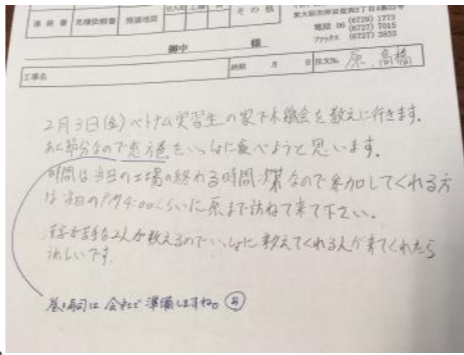 その他
電話 06 (6729) 1773
(6727) 7015
ファックス (6727) 3933
御中 様
工事名 納期 月 日 注文払 原 高橋
2月3日(金) ベトナム実習生の家で木鶏会を教えに行きます。
あと節分なので恵方巻をいっしょに食べようと思います。
時間は当日の工場の終わる時間次第なので参加してくれる方
は当日のPM4:00くらいに原まで訪ねて来て下さい。
苦手な2人が教えるのでいっしょに教えてくれる人が来てくれたら
うれしいです。
巻き寿司は会社で準備しますね。